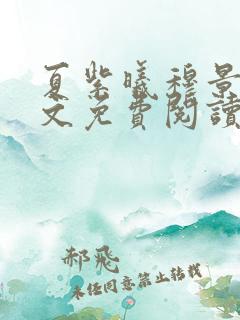 夏紫曦穆景
文免費閱讀
郝飛
未经同意禁止转载